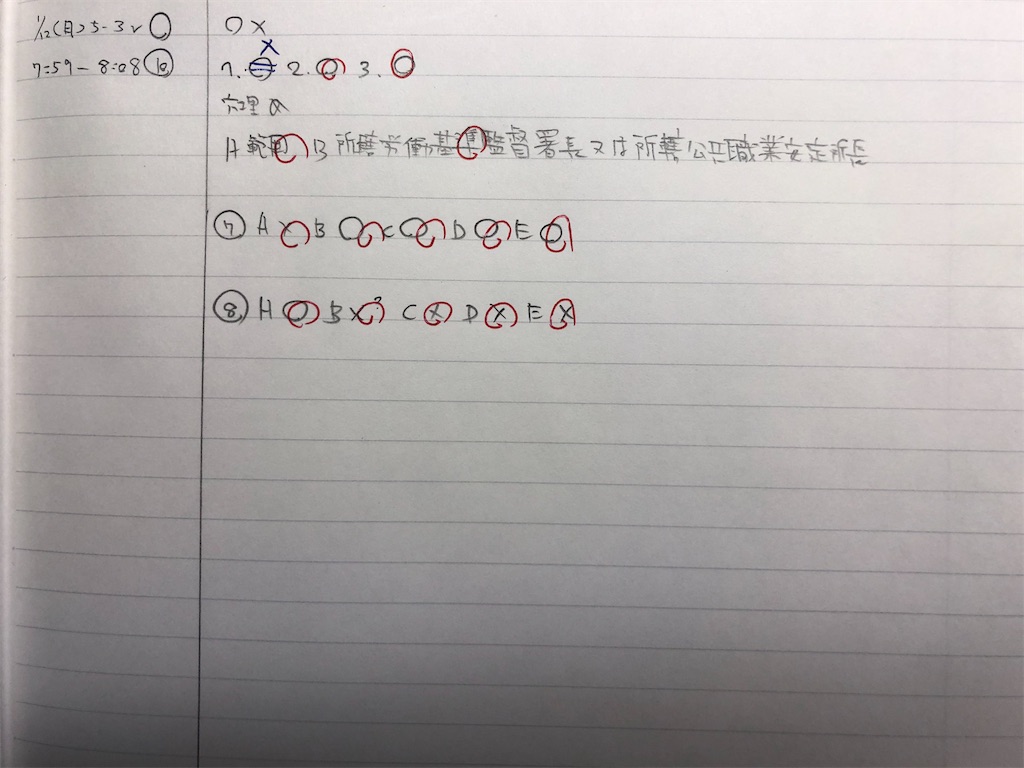 1/12(月)5-3✓◯
◯×
7:59-8:08⑩
1.◯× 2.◯ 3.◯
穴埋め
A 範囲 B 所轄労働基準監督署長又は所轄公共職業安定所長
⑦ A × B ◯ C ◯ D ◯ E ◯
⑧ A ◯ B × C × D × E ×